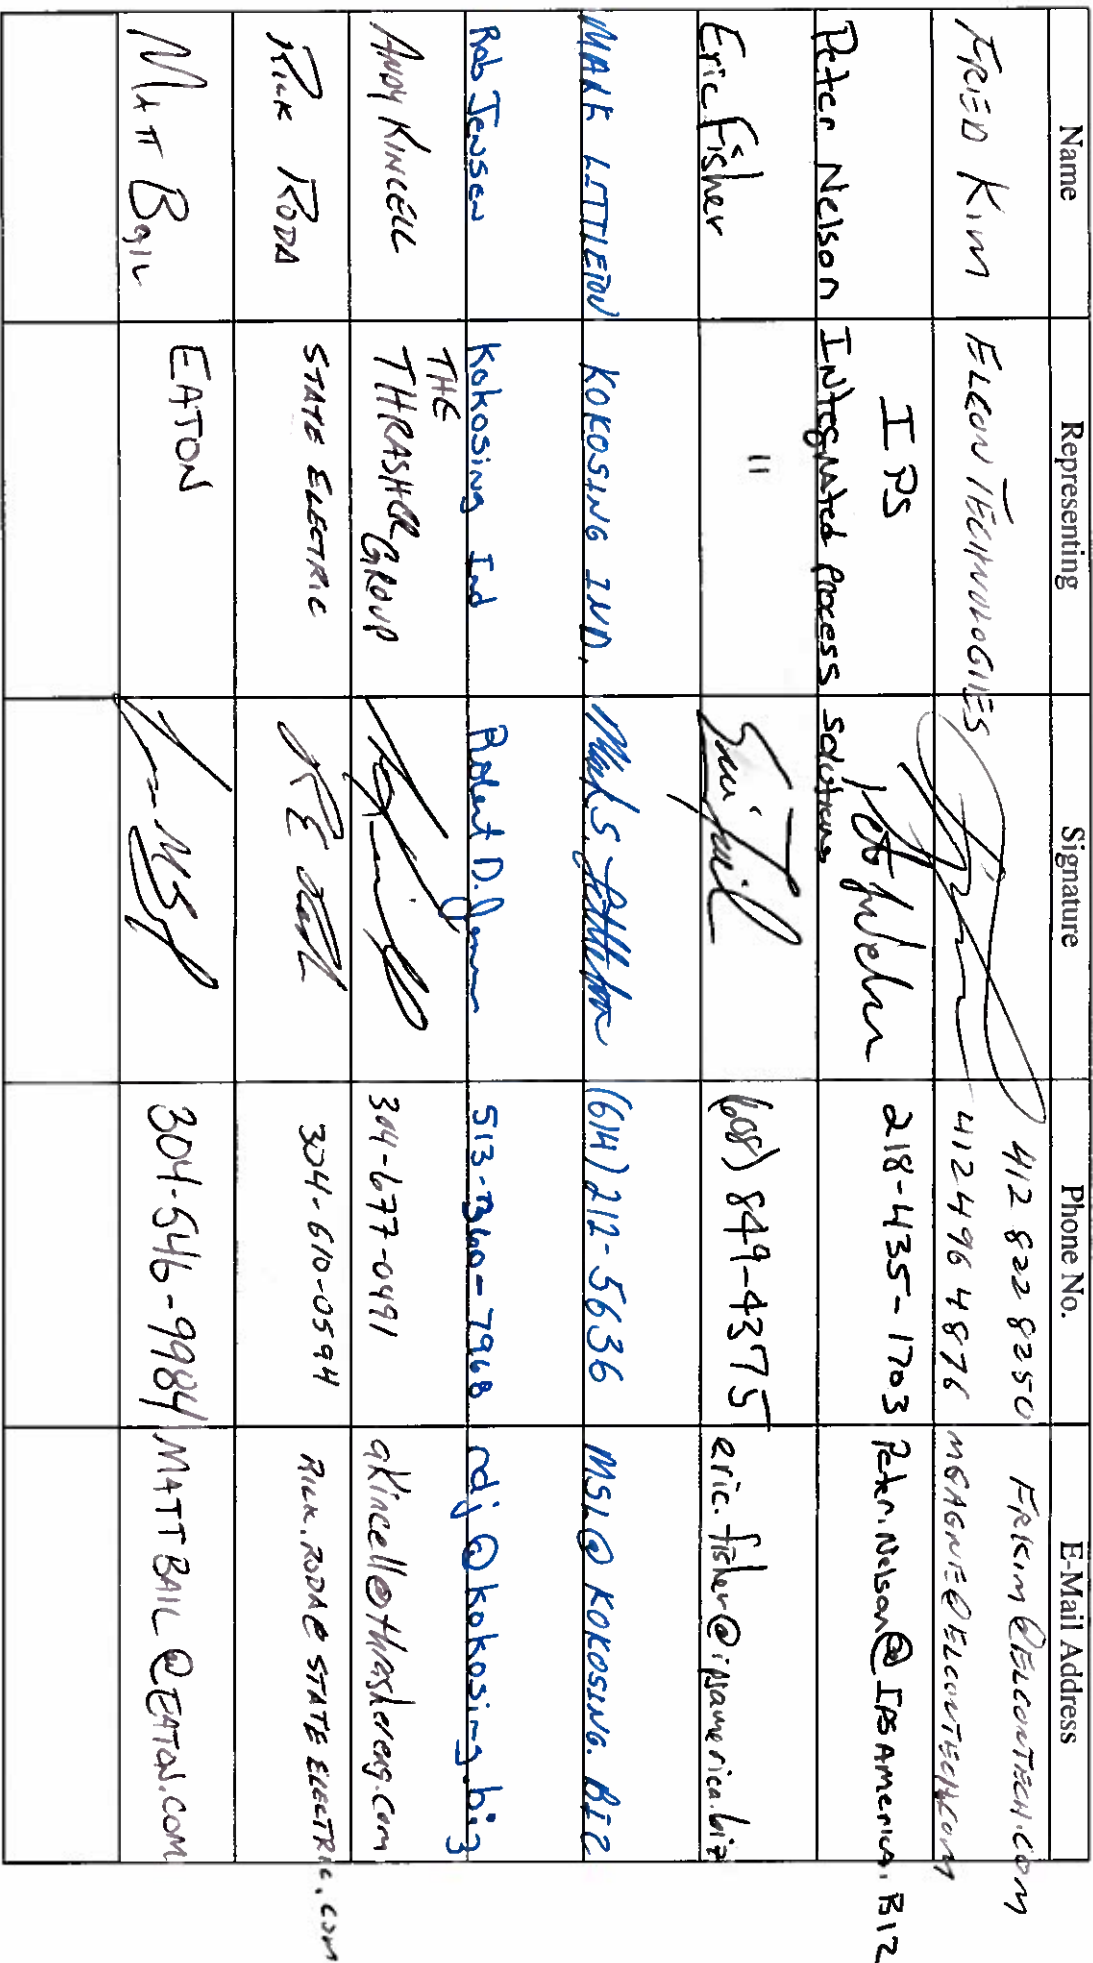 Name Representing Signature Phone No. E-Mail Address
FRIED KIM ELCON TECHNOLOGIES 412 822 8250 FRKIM@ELCONTECH.COM
412 496 4876 MGAGNE@ELCONTECH.COM
Peter Nelson IPS 218-435-1703 Peter.Nelson@IPSAmerica.BIZ
Integrated Process Solutions
Eric Fisher " (608) 849-4375 eric.fisher@ipsamerica.biz
MARK LITTLETON KOKOSING IND. Mark S. Littleton (614) 212-5636 MSL@KOKOSING.BIZ
Rob Jensen Kokosing Ind Robert D. Jensen 513-360-7968 rdj@kokosing.biz
ANDY KINCELL THE THRASHER GROUP 304-677-0491 akincell@thrashereng.com
RICK RODA STATE ELECTRIC 304-610-0594 RICK.RODA@STATEELECTRIC.COM
MATT BAIL EATON 304-546-9984 MATTBAIL@EATON.COM